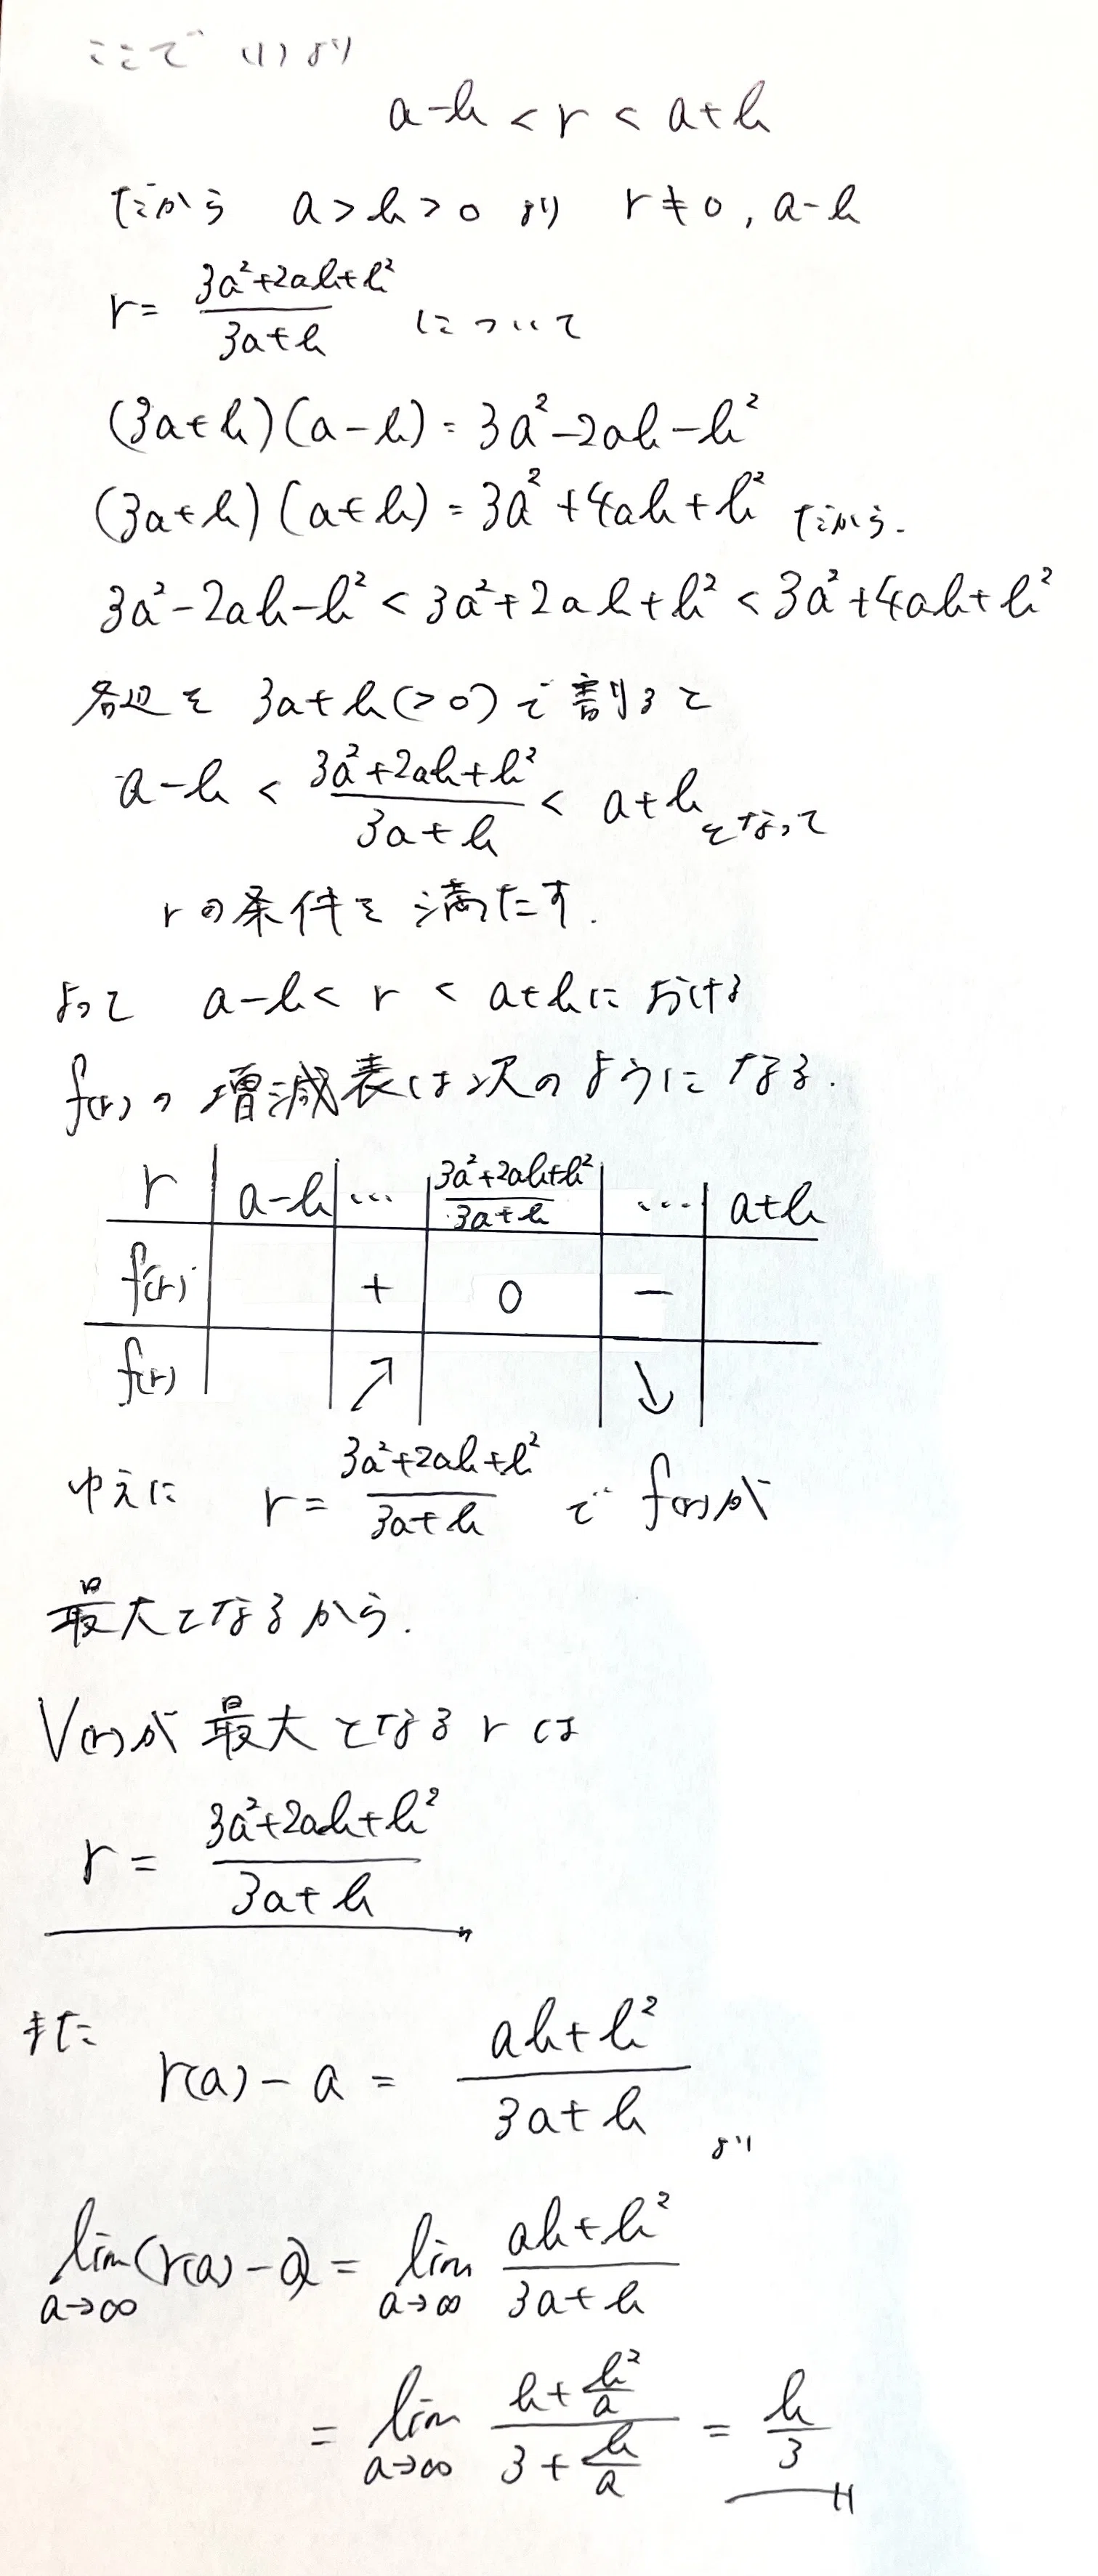 ここで (1)より
a-h < r < a+h
だから a>h>0 より r≠0, a-h
r= (3a²+2ah+h²)/(3a+h) について
(3a+h)(a-h)=3a²-2ah-h²
(3a+h)(a+h)=3a²+4ah+h² だから.
3a²-2ah-h²<3a²+2ah+h²<3a²+4ah+h²
各辺を 3a+h(>0)で割ると
a-h < (3a²+2ah+h²)/(3a+h) < a+h となって
rの条件を満たす.
よって a-h< r < a+hにおける
f(r)の増減表は次のようになる.
r | a-h | … | (3a²+2ah+h²)/(3a+h) | … | a+h
f'(r) | | + | 0 | - |
f(r) | | ↗ | | ↘ |
ゆえに r= (3a²+2ah+h²)/(3a+h) で f(r)が
最大となるから.
V(r)が最大となるrは
r= (3a²+2ah+h²)/(3a+h)
また r(a)-a = (ah+h²)/(3a+h) より
lim_{a→∞}(r(a)-a)= lim_{a→∞} (ah+h²)/(3a+h)
= lim_{a→∞} (h+h²/a)/(3+h/a) = h/3